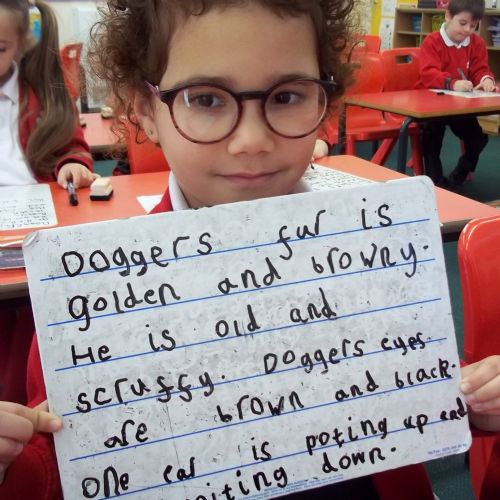 Doggers fur is
golden and browny.
He is old and
scruffy. Doggers eyes.
are brown and black.
one ear is poting up and
down.